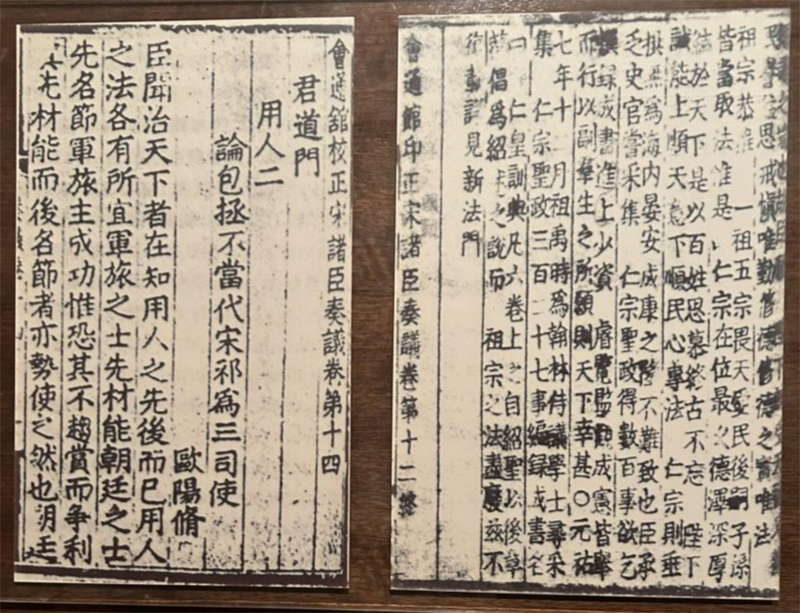 恩戒懼唯勤修德修德之實唯法
祖宗恭惟 一祖五宗畏天愛民後嗣子孫
皆當取法唯是 仁宗在位最久德澤深厚
結於天下是以百姓思慕終古不忘 陛下
誠能上順天意下順民心專法 仁宗則垂
拱無為海内晏安成康之隆不難致也臣承
乏史官嘗采集 仁宗聖政得數百事欲乞
録成書進上少資 睿覽監觀成憲皆舉
而行以副羣生之所願則天下幸甚〇元祐
七年十一月祖禹時為翰林侍講學士尋采
集 仁宗聖政三百二十七事編録成書名
曰 仁皇訓典凡六卷上之自紹聖以後章
蔡倡爲紹述之說而 祖宗之法盡廢玆不
訓見新法門
會通館印正宋諸臣奏議卷第十二終
會通舘校正宋諸臣奏議卷第十四
君道門
用人二
論包拯不當代宋祁爲三司使
歐陽脩
臣聞治天下者在知用人之先後而已用人
之法各有所宜軍旅之士先材能朝廷之士
先名節軍旅主成功惟恐其不趨賞而争利
其先材能而後名節者亦勢使之然也朝廷